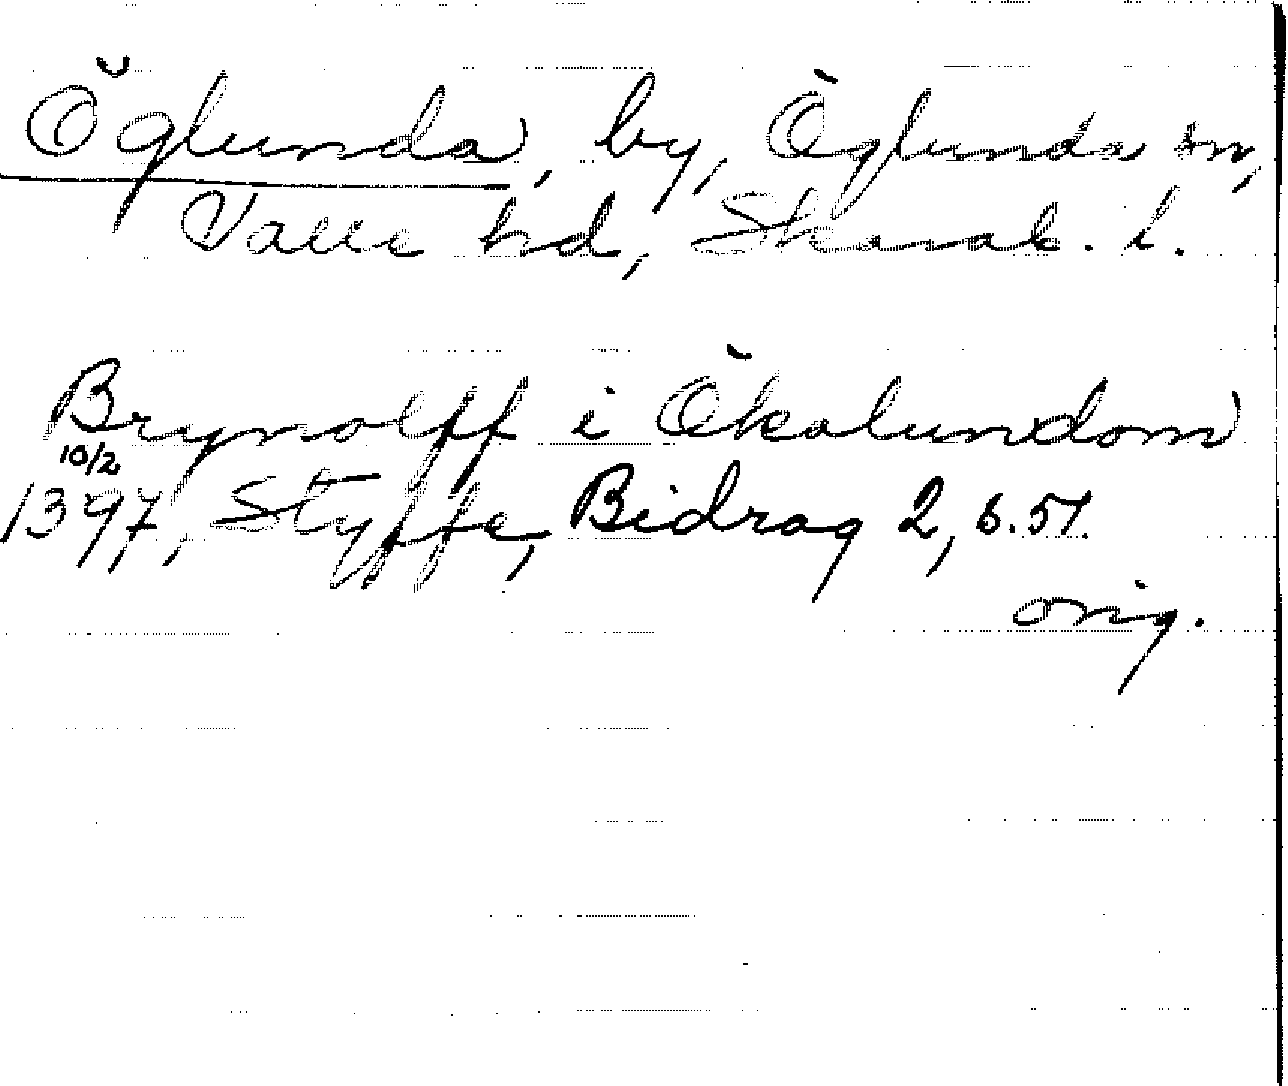 Öglunda, by, Öglunda sn,
Valle hd, Skarab. l.
Brynolff i Ökolundom
10/2
1397, Styffe, Bidrag 2, s. 51.
orig.